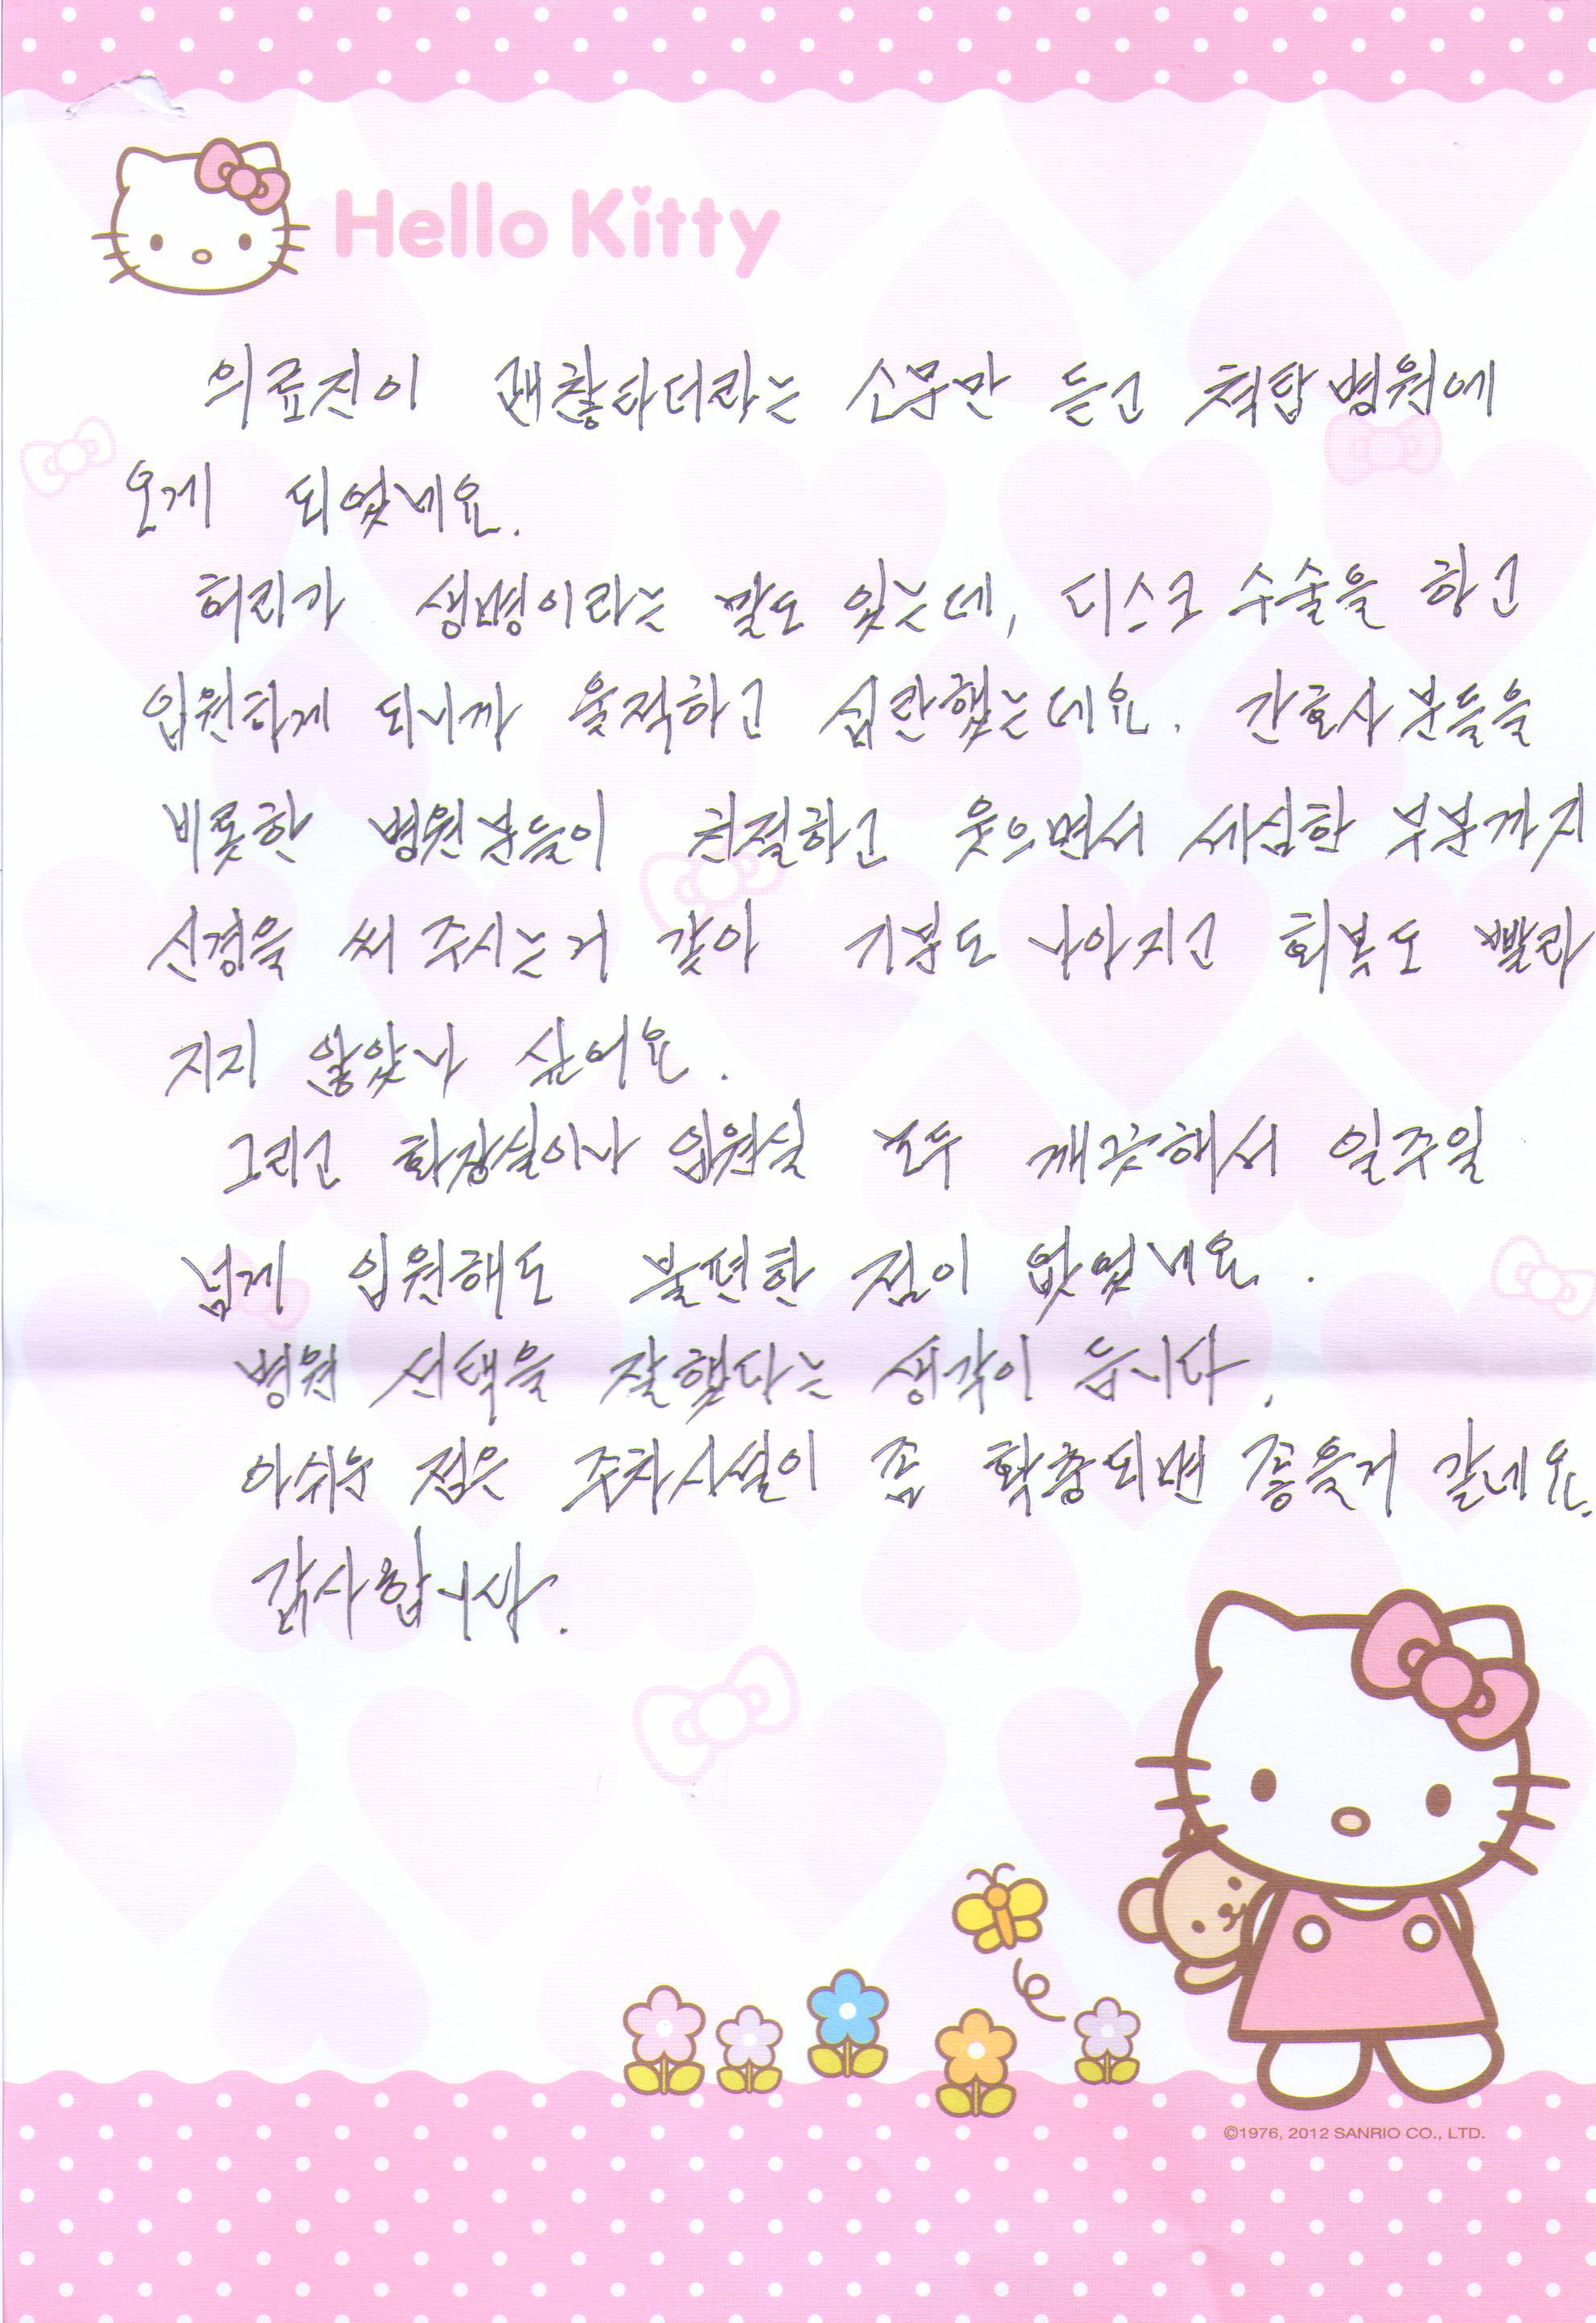 Hello Kitty
의료진이 괜찮타더라는 소문만 듣고 척탑병원에
오게 되었네요.
허리가 생명이라는 말도 있는데, 디스크 수술을 하고
입원하게 되니까 울적하고 심란했는데요. 간호사분들을
비롯한 병원분들이 친절하고 웃으면서 세심한 부분까지
신경을 써 주시는거 같아 기분도 나아지고 회복도 빨라
지지 않았나 싶어요.
그리고 화장실이나 입원실 모두 깨끗해서 일주일
넘게 입원해도 불편한 점이 없었네요.
병원 선택을 잘했다는 생각이 듭니다.
아쉬운 점은 주차시설이 좀 확충되면 좋을거 같네요.
감사합니다.
©1976, 2012 SANRIO CO., LTD.